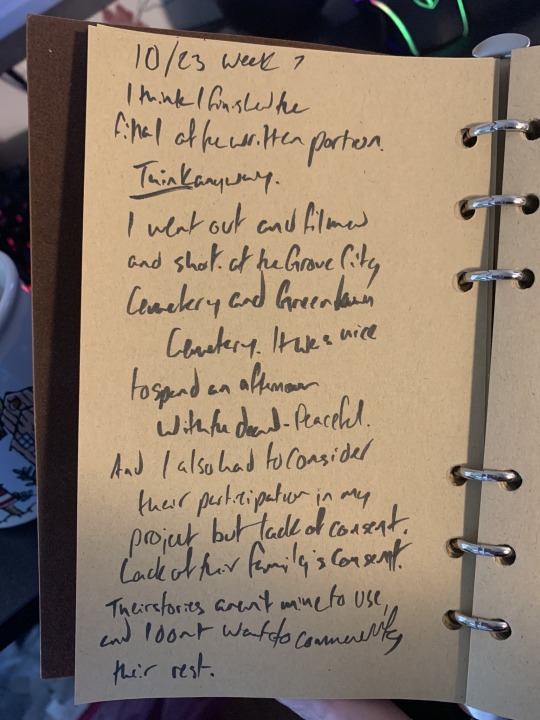 10/23 week 7
I think I finished the
final of the written portion.
Think anyway.
I went out and filmed
and shot at the Grove City
Cemetery and Greenlawn
Cemetery. It was nice
to spend an afternoon
with the dead - Peaceful.
And I also had to consider
their participation in my
project but lack of consent.
Lack of their family's consent.
Their stories aren't mine to use,
and I don't want to
their rest.